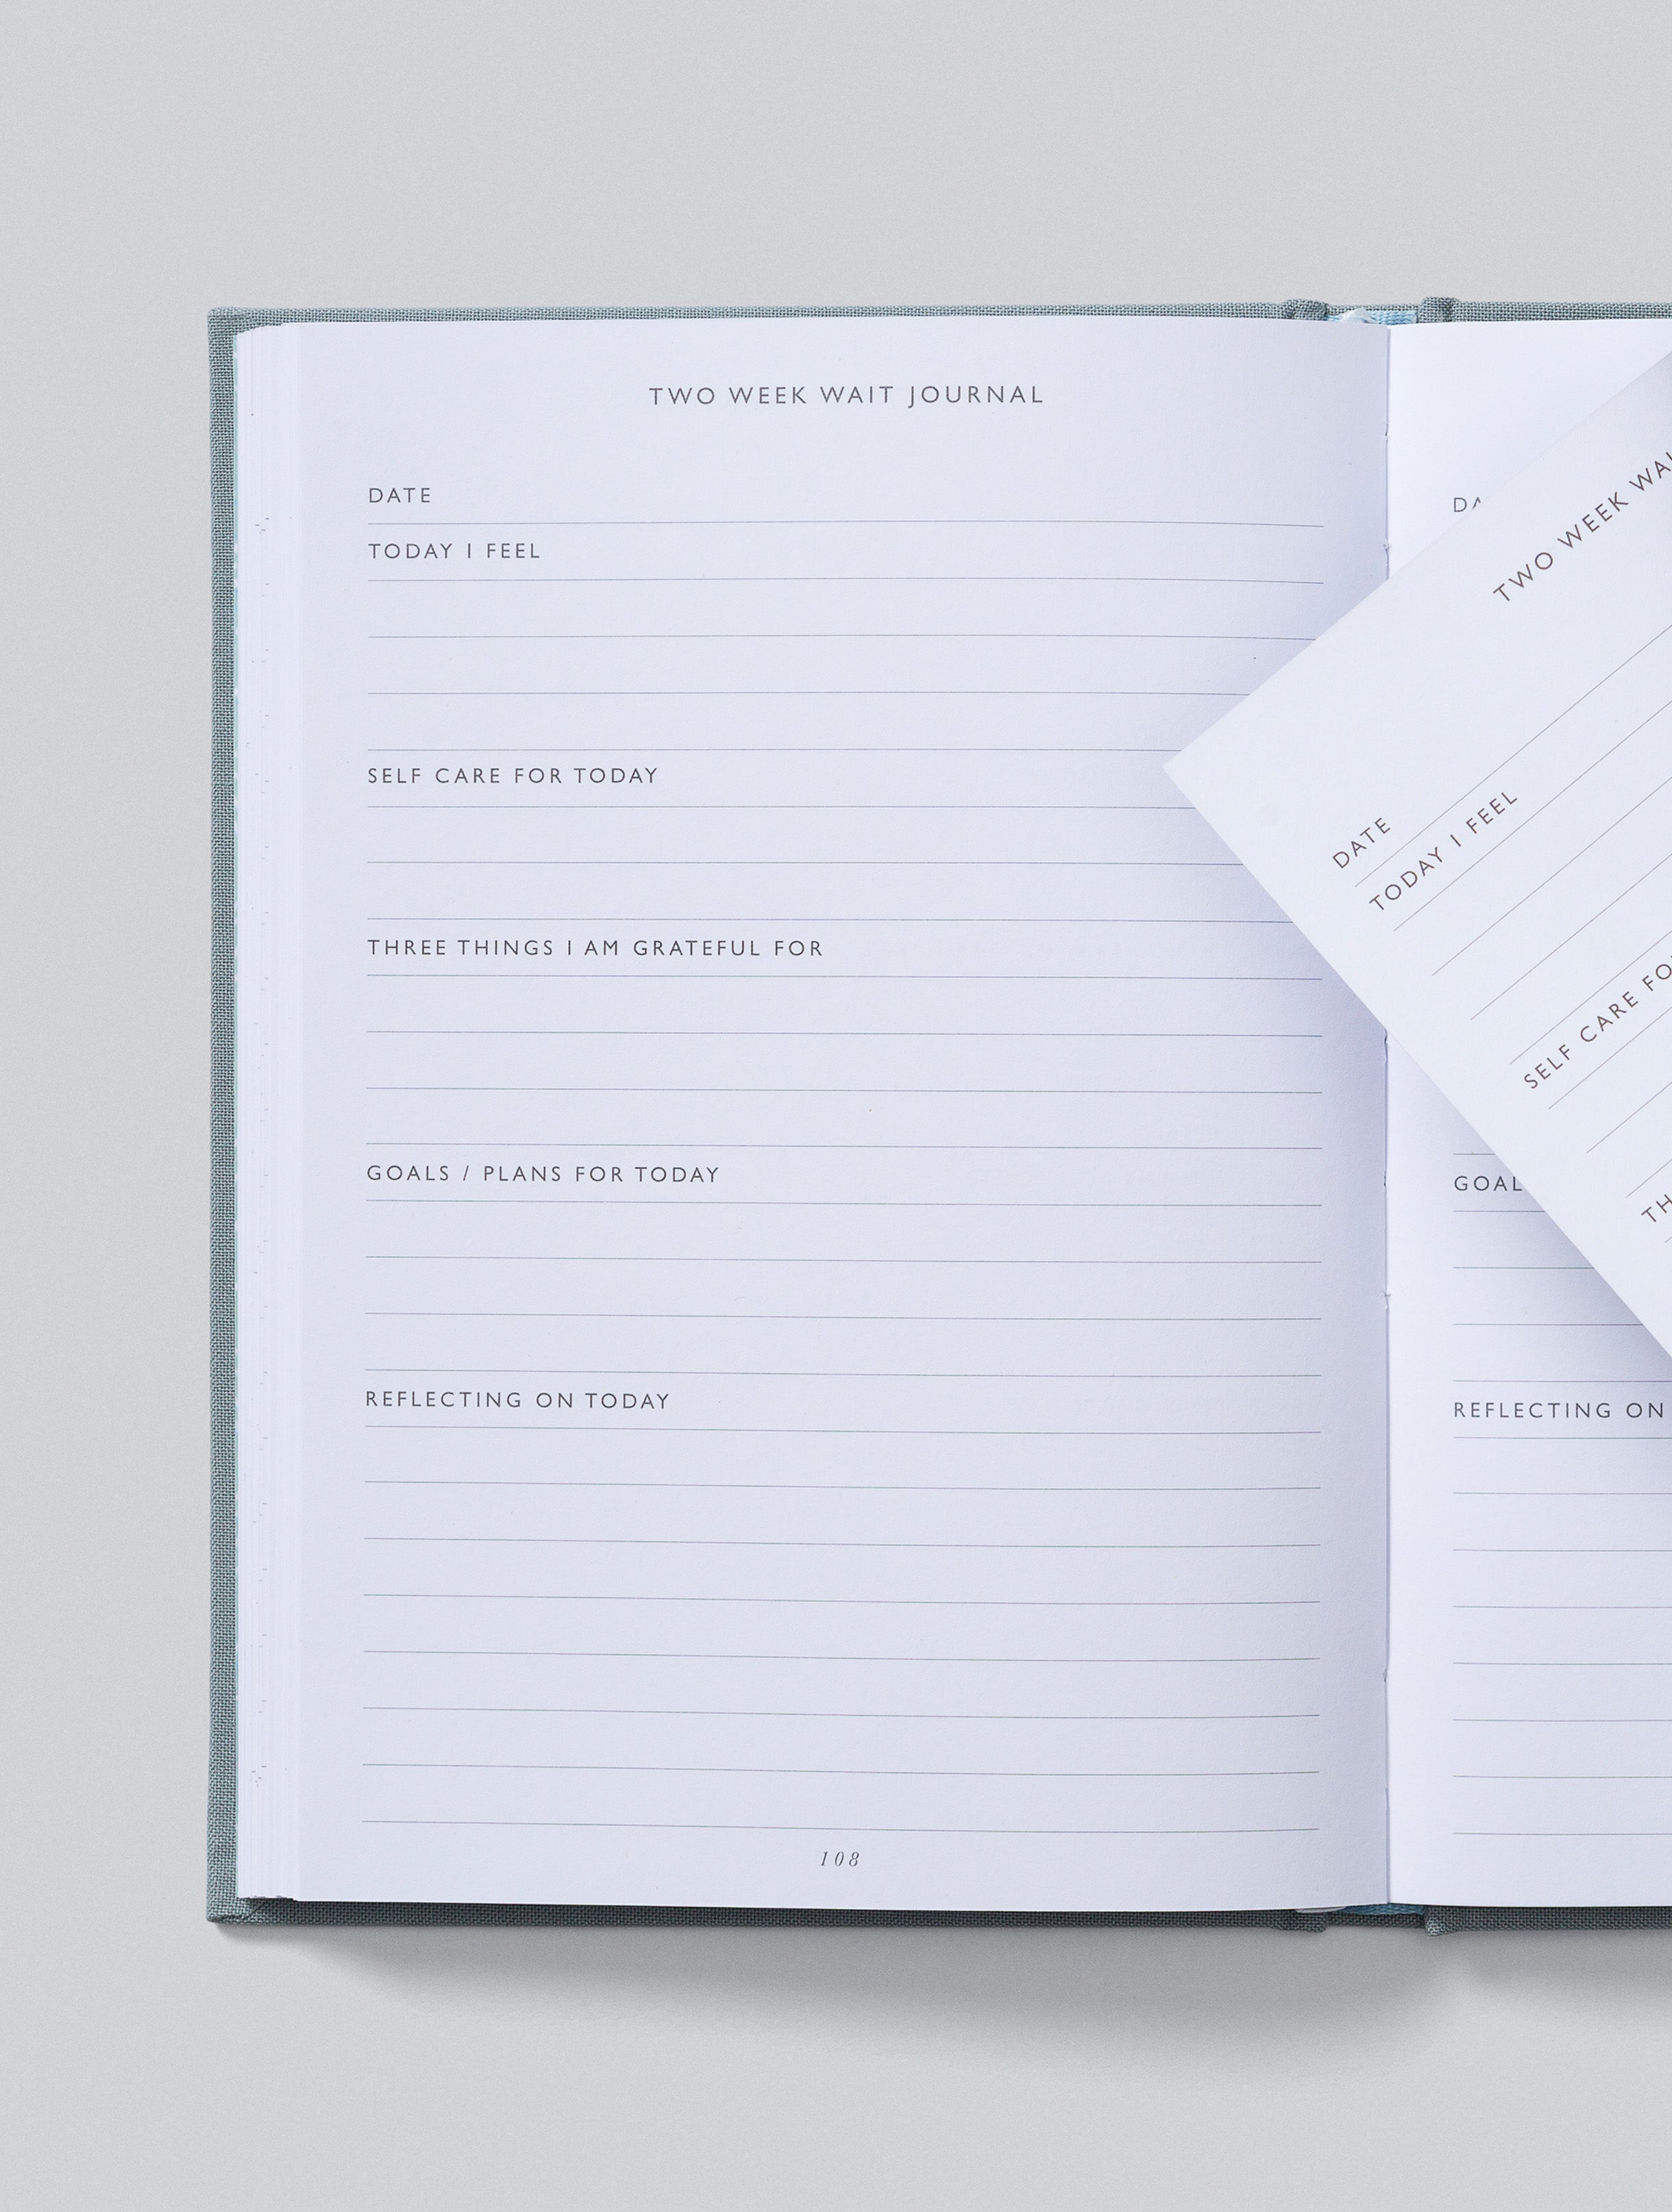 TWO WEEK WAIT JOURNAL
DATE
TODAY I FEEL
SELF CARE FOR TODAY
THREE THINGS I AM GRATEFUL FOR
GOALS / PLANS FOR TODAY
REFLECTING ON TODAY
108
REFLECTING ON
TWO WEEK
DATE
TODAY I FEEL
SELF CARE